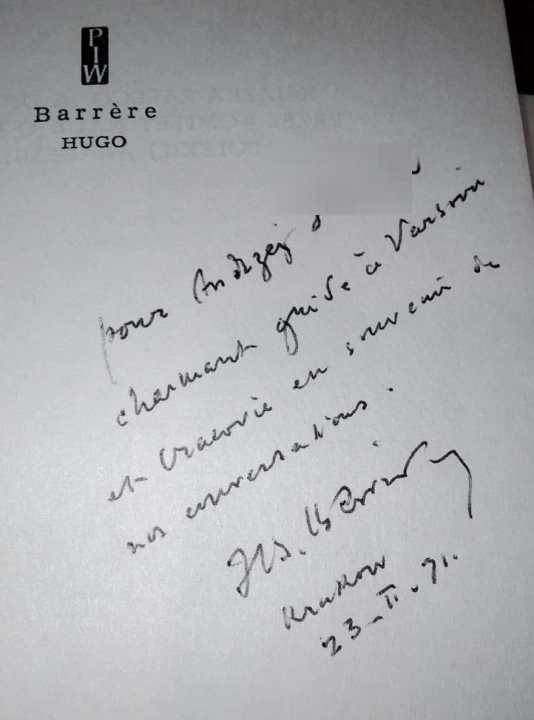 PIW
Barrère
HUGO
pour Andrzej
charmant guide à Varsovie
et Cracovie en souvenir de
nos conversations.
JB. Barrère
Krakow
23-II-71.